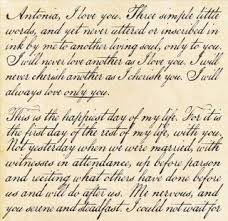 Antonia, I love you. Three simple little
words, and yet never uttered or inscribed in
ink by me to another living soul, only to you.
I will never love another as I love you. I will
never cherish another as I cherish you. I will
always love only you.
This is the happiest day of my life. For it is
the first day of the rest of my life, with you.
Not yesterday when we were married, with
witnesses in attendance, up before parson
and reciting what others have done before
us and will do after us. Me nervous, and
you serene and steadfast. I could not wait for